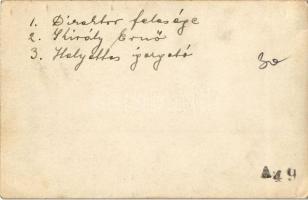 1. Direktor felesége
2. Király Ernő
3. Helyettes igazgató
30
A 49